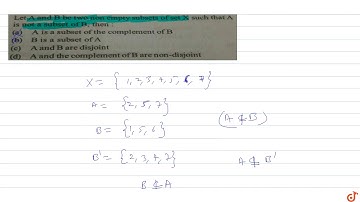 Let A and B be two non empty subsets of set X such that A
is not a subset of B, then :
(a) A is a subset of the complement of B
(b) B is a subset of A
(c) A and B are disjoint
(d) A and the complement of B are non-disjoint
X = { 1, 2, 3, 4, 5, 6, 7 }
A = { 2, 5, 7 }
B = { 1, 5, 6 }
(A ⊄ B)
B' = { 2, 3, 4, 7 }
A ⊄ B'
B ⊄ A